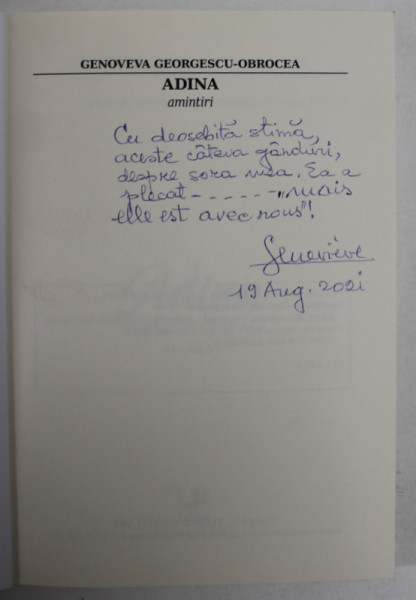 GENOVEVA GEORGESCU-OBROCEA
ADINA
amintiri
Cu deosebită stimă,
aceste câteva gânduri,
despre sora mea. Ea a
plecat------„mais
elle est avec nous"!
Geneviève
19 Aug. 2021